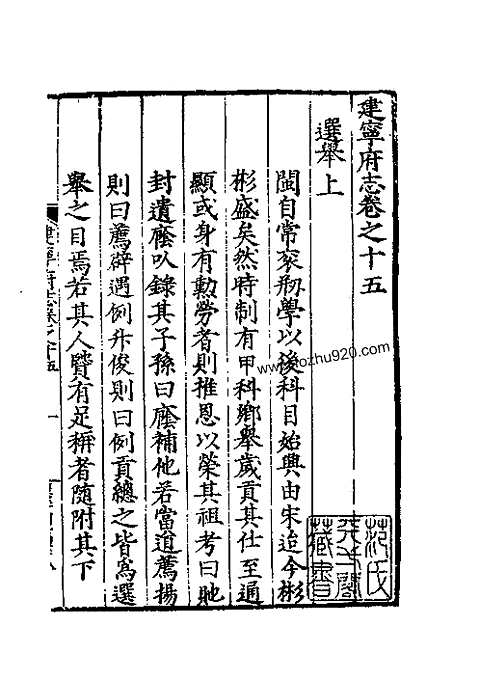 建寧府志卷之十五
選舉上
閩自常衮刱學以後科目始興由宋迨今彬
彬盛矣然時制有甲科鄉舉歲貢其仕至通
顯或身有勳勞者則推恩以榮其祖考曰貤
封遺廕以錄其子孫曰廕補他若當道薦揚
則曰薦辟遇例升俊則曰例貢總之皆爲選
舉之目焉若其人賢有足稱者隨附其下
建寧府志卷之十五
一
范氏天一閣藏書
www.kozhu920.com